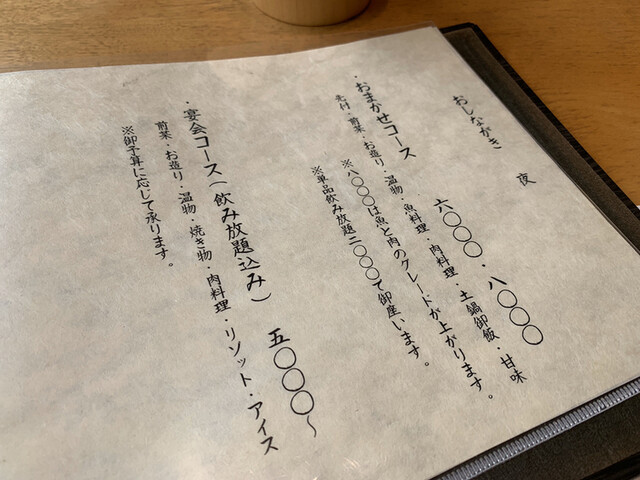 おしながき　夜
・おまかせコース　六〇〇〇・八〇〇〇
先付・前菜・お造り・温物・魚料理・肉料理・土鍋御飯・甘味
※八〇〇〇は魚と肉のグレードが上がります。
※単品飲み放題二〇〇〇で御座います。
・宴会コース（飲み放題込み）　五〇〇〇～
前菜・お造り・温物・焼き物・肉料理・リゾット・アイス
※御予算に応じて承ります。